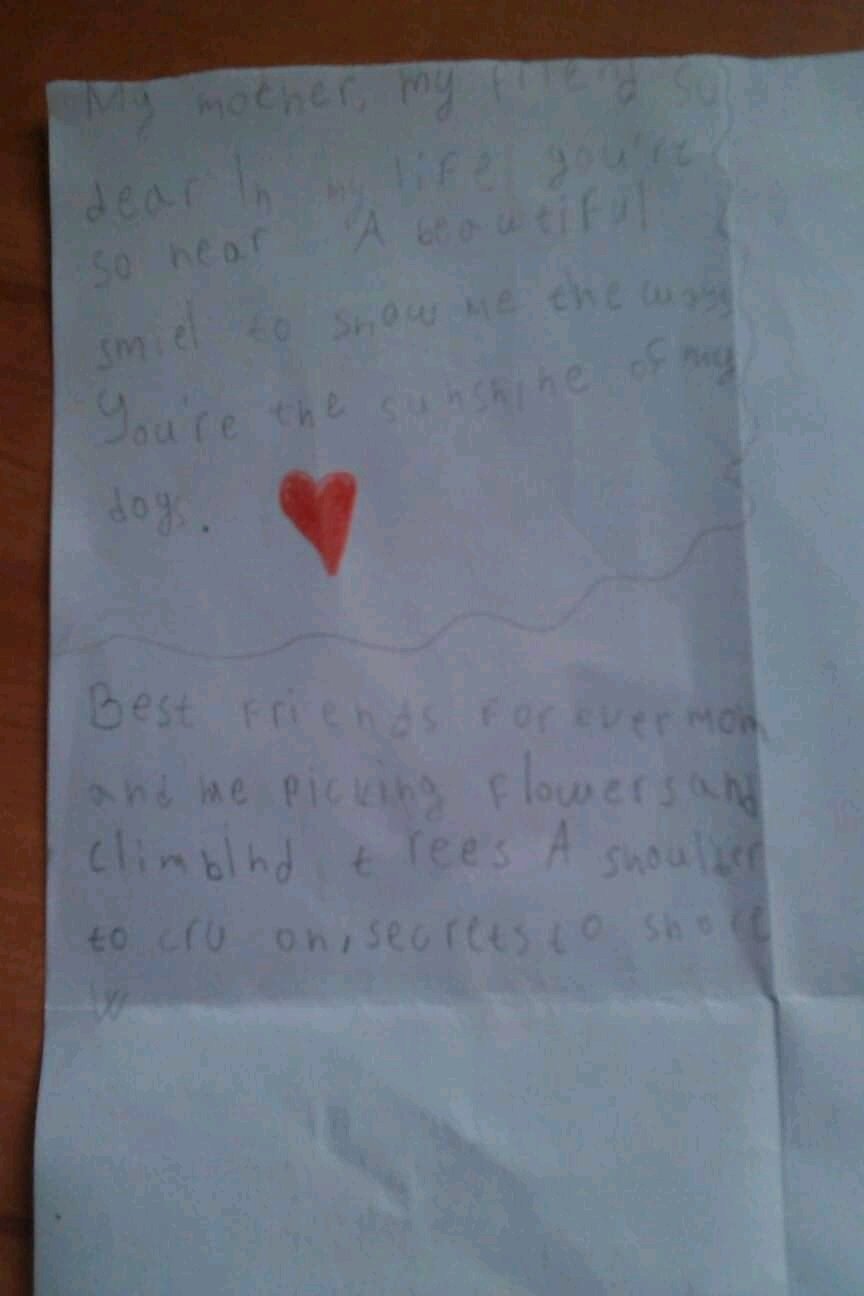 My mother, my friend so
dear In my life you're
so near A beautiful
smiel to show me the way
You're the sunshine of my
days.
Best Friends For ever mom
and me picking flowers and
climbind trees A shoulder
to cru on, secrets to share
W